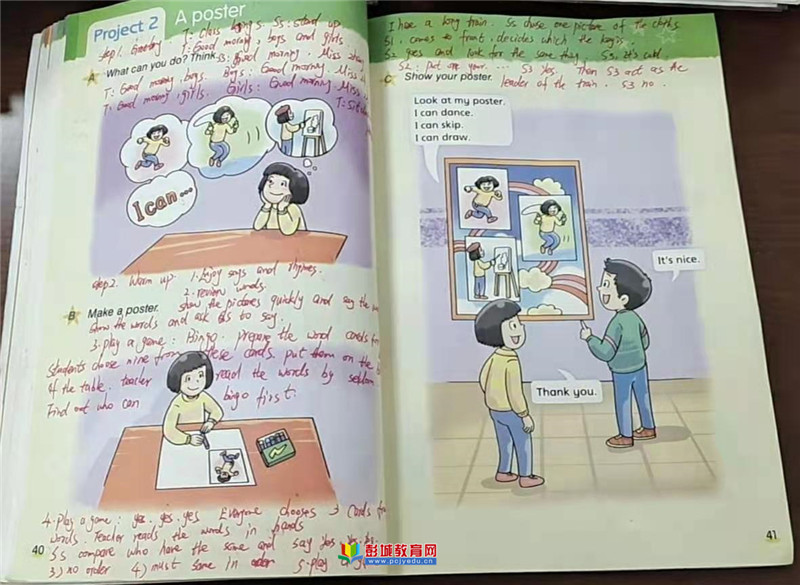 Project 2 A poster
step1. Greeting. T: Class begins. Ss: stand up
T: Good morning, boys and girls
A What can you do? Think. Ss: Good morning. Miss
T: Good morning, boys. Boys: Good morning. Miss
T: Good morning, girls. Girls: Good morning. Miss
T: Sit
I can...
step2. Warm up. 1. Enjoy songs and rhymes.
2. review words.
B Make a poster. show the pictures quickly and say the
show the words and ask Ss to say.
3. play a game: Bingo. prepare the word cards
Students choose nine from these cards. put them on the
4 the table. teacher read the words by
Find out who can bingo first.
4. play a game: yes. yes. yes Everyone chooses 3 cards
words. Teacher reads the words in hands
Ss compare who have the same and say yes
3) no order 4) must same in order 5. play
40
I have a long train. Ss chose one picture of the
S1 comes to front, decides which the
S2 goes and look for the same
S2: put on your ... S3 Yes. Then S3 act as the
leader of the train. S3 no.
C Show your poster.
Look at my poster.
I can dance.
I can skip.
I can draw.
It's nice.
Thank you.
41
彭城教育网
www.pcjyedu.cn